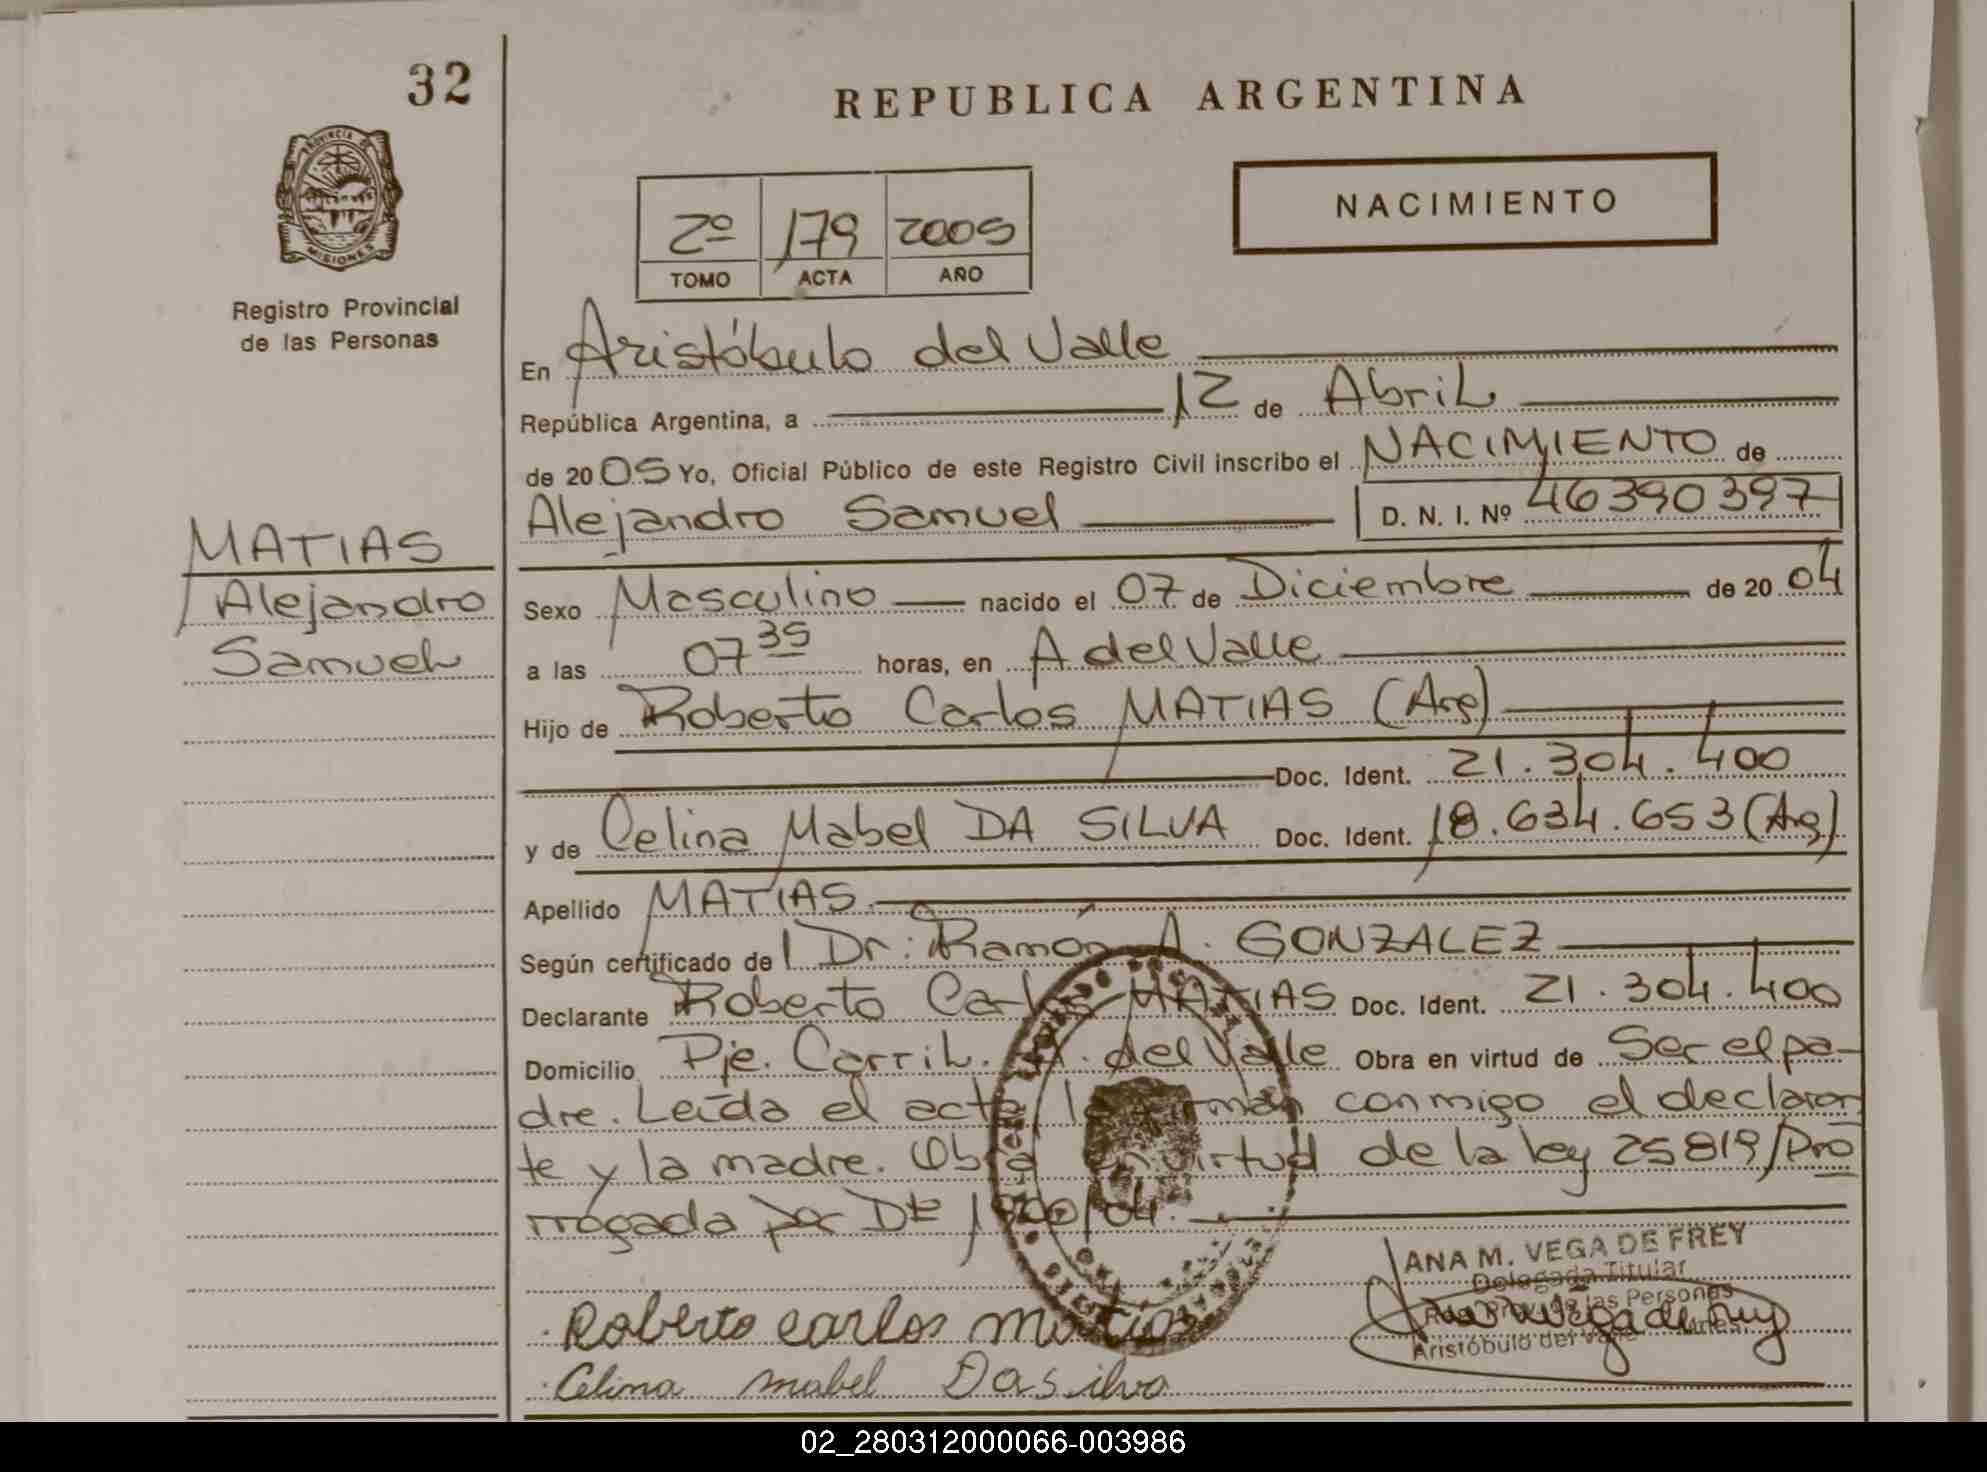 32
REPUBLICA ARGENTINA
PROVINCIA DE
MISIONES
Registro Provincial
de las Personas
2º 179 2005
TOMO ACTA AÑO
NACIMIENTO
En Aristóbulo del Valle
República Argentina, a 12 de Abril
de 2005 Yo, Oficial Público de este Registro Civil inscribo el NACIMIENTO de
Alejandro Samuel D. N. I. Nº 46390397
MATIAS
Alejandro
Samuel
Sexo Masculino nacido el 07 de Diciembre de 2004
a las 07 35 horas, en A del Valle
Hijo de Roberto Carlos MATIAS (Arg)
Doc. Ident. 21.304.400
y de Celina Mabel DA SILVA Doc. Ident. 18.634.653 (Arg)
Apellido MATIAS
Según certificado de Dr: Ramón A. GONZALEZ
Declarante Roberto Carlos MATIAS Doc. Ident. 21.304.400
Domicilio Pje. Carril. A. del Valle Obra en virtud de Ser el pa-
dre. Leída el acta la firman conmigo el declaran
te y la madre. Obra en virtud de la ley 25819/Pro
rrogada por Dto
Roberto carlos matias
Celina mabel Dasilva
ANA M. VEGA DE FREY
Delegada Titular
las Personas
Aristóbulo del Valle
02_280312000066-003986